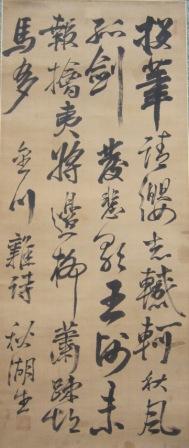 投筆請纓志轗軻秋風
孤劍發悲歌王師未
報擒夷將邊柳蕭疎牧
馬多 金川雜詩 秋湖生